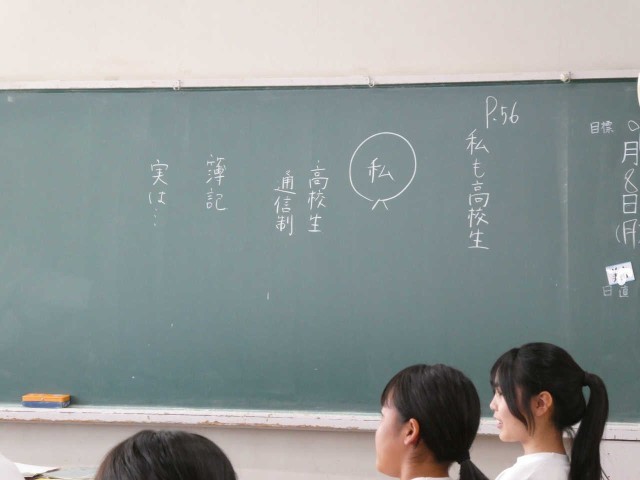 目標
月8日(月
日直
P.56
私も高校生
私
高校生
通信制
簿記
実は…